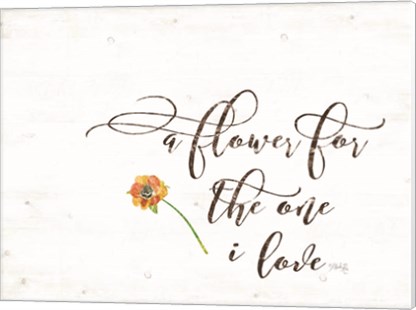 a flower for
the one
i love